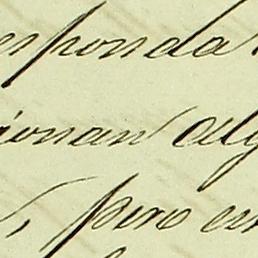 esponda
ionan alg
, pero en